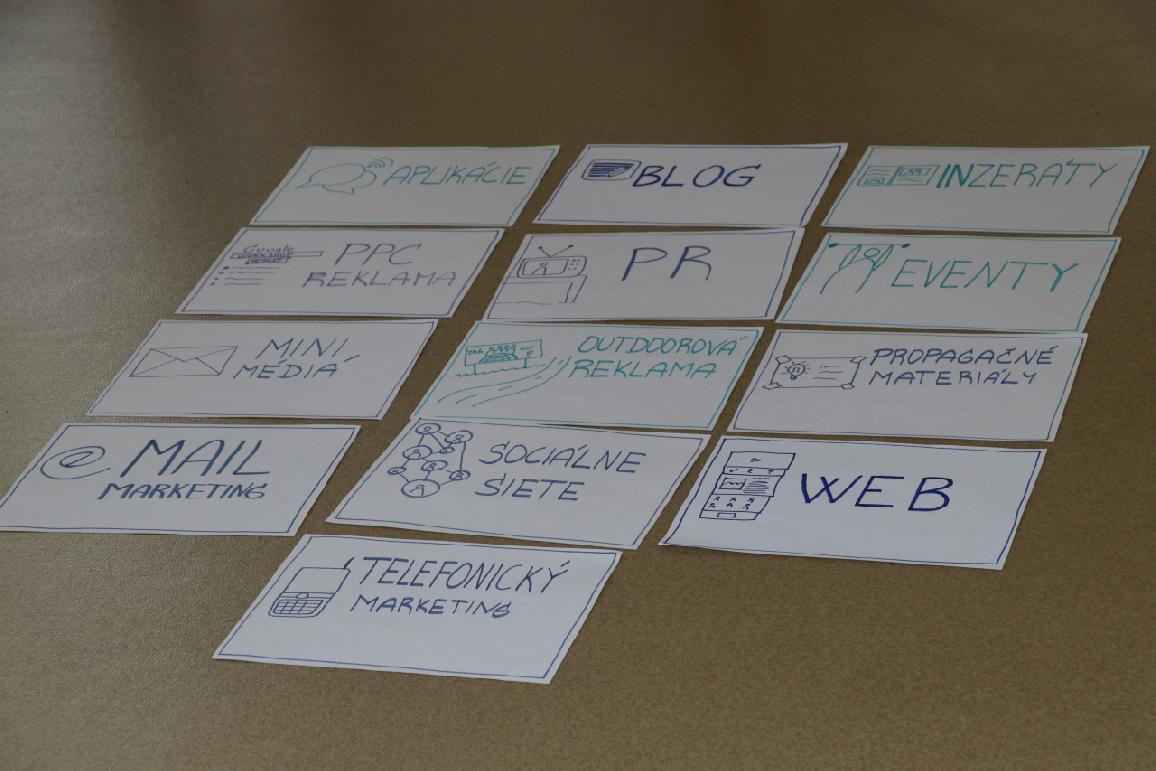 APLIKÁCIE
BLOG
INZERÁTY
Google
PPC
REKLAMA
PR
EVENTY
MINI
MÉDIÁ
OUTDOOROVÁ
REKLAMA
PROPAGAČNÉ
MATERIÁLY
MAIL
MARKETING
SOCIÁLNE
SIETE
WEB
TELEFONICKÝ
MARKETING